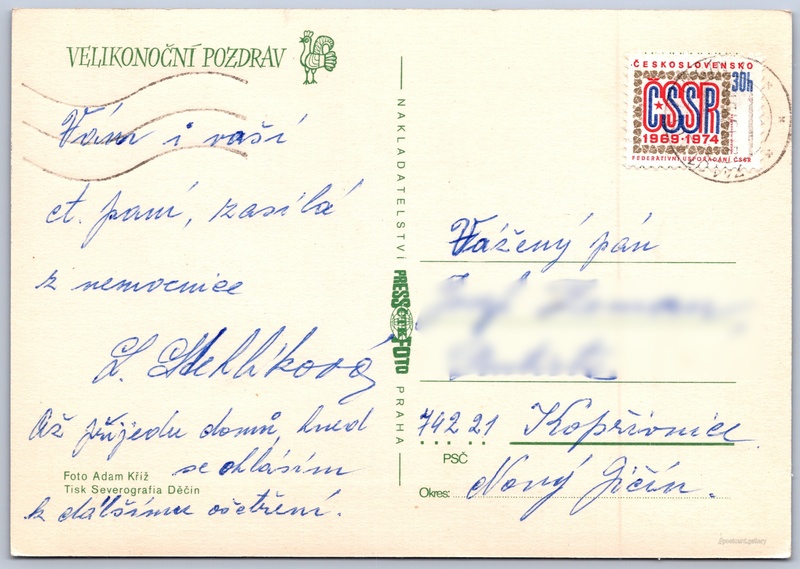 VELIKONOČNÍ POZDRAV
Vám i vaší
ct. paní, zasílá
z nemocnice
L. Stehlíková
Až přijedu domů, hned
se ohlásím
k dalšímu ošetření.
Foto Adam Kříž
Tisk Severografia Děčín
NAKLADATELSTVÍ
PRESSFOTO
PRAHA
ČESKOSLOVENSKO
30h
ČSSR
1969-1974
FEDERATIVNÍ USPOŘÁDÁNÍ ČSSR
Vážený pán
742 21 Kopřivnice
PSČ
Okres: Nový Jičín.